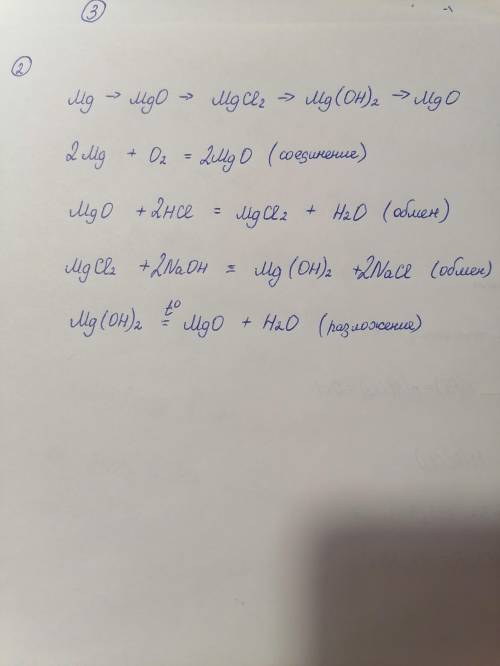 ③
②
Mg → MgO → MgCl₂ → Mg(OH)₂ → MgO
2Mg + O₂ = 2MgO (соединение)
MgO + 2HCl = MgCl₂ + H₂O (обмен)
MgCl₂ + 2NaOH = Mg(OH)₂ + 2NaCl (обмен)
Mg(OH)₂ =^t° MgO + H₂O (разложение)